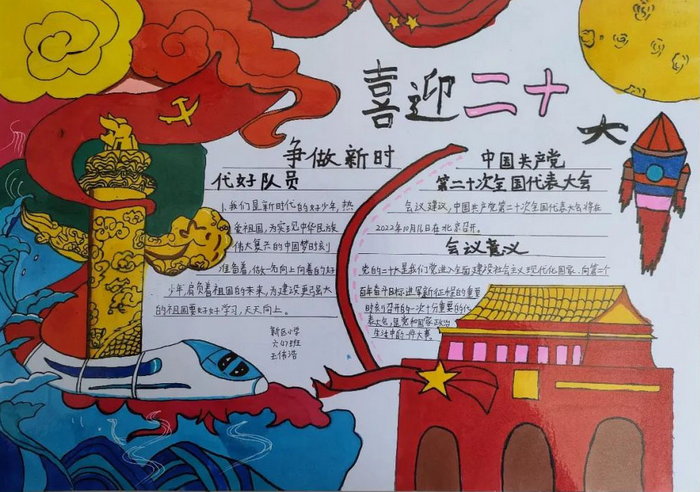 喜迎二十大
争做新时
代好队员
1.我们是新时代的好少年,热
爱祖国,为实现中华民族
伟大复兴的中国梦时刻
准备着,做一名向上向善的好
少年,肩负着祖国的未来,为建设更强大
的祖国要好好学习,天天向上。
新区小学
六07班
王伟浩
中国共产党
第二十次全国代表大会
会议建议,中国共产党第二十次全国代表大会将在
2022年10月16日在北京召开。
会议意义
党的二十大是我们党进入全面建设社会主义现代化国家、向第二个
百年奋斗目标进军新征程的重要
时刻召开的一次十分重要的代
表大会,是党和国家政治
生活中的一件大事。